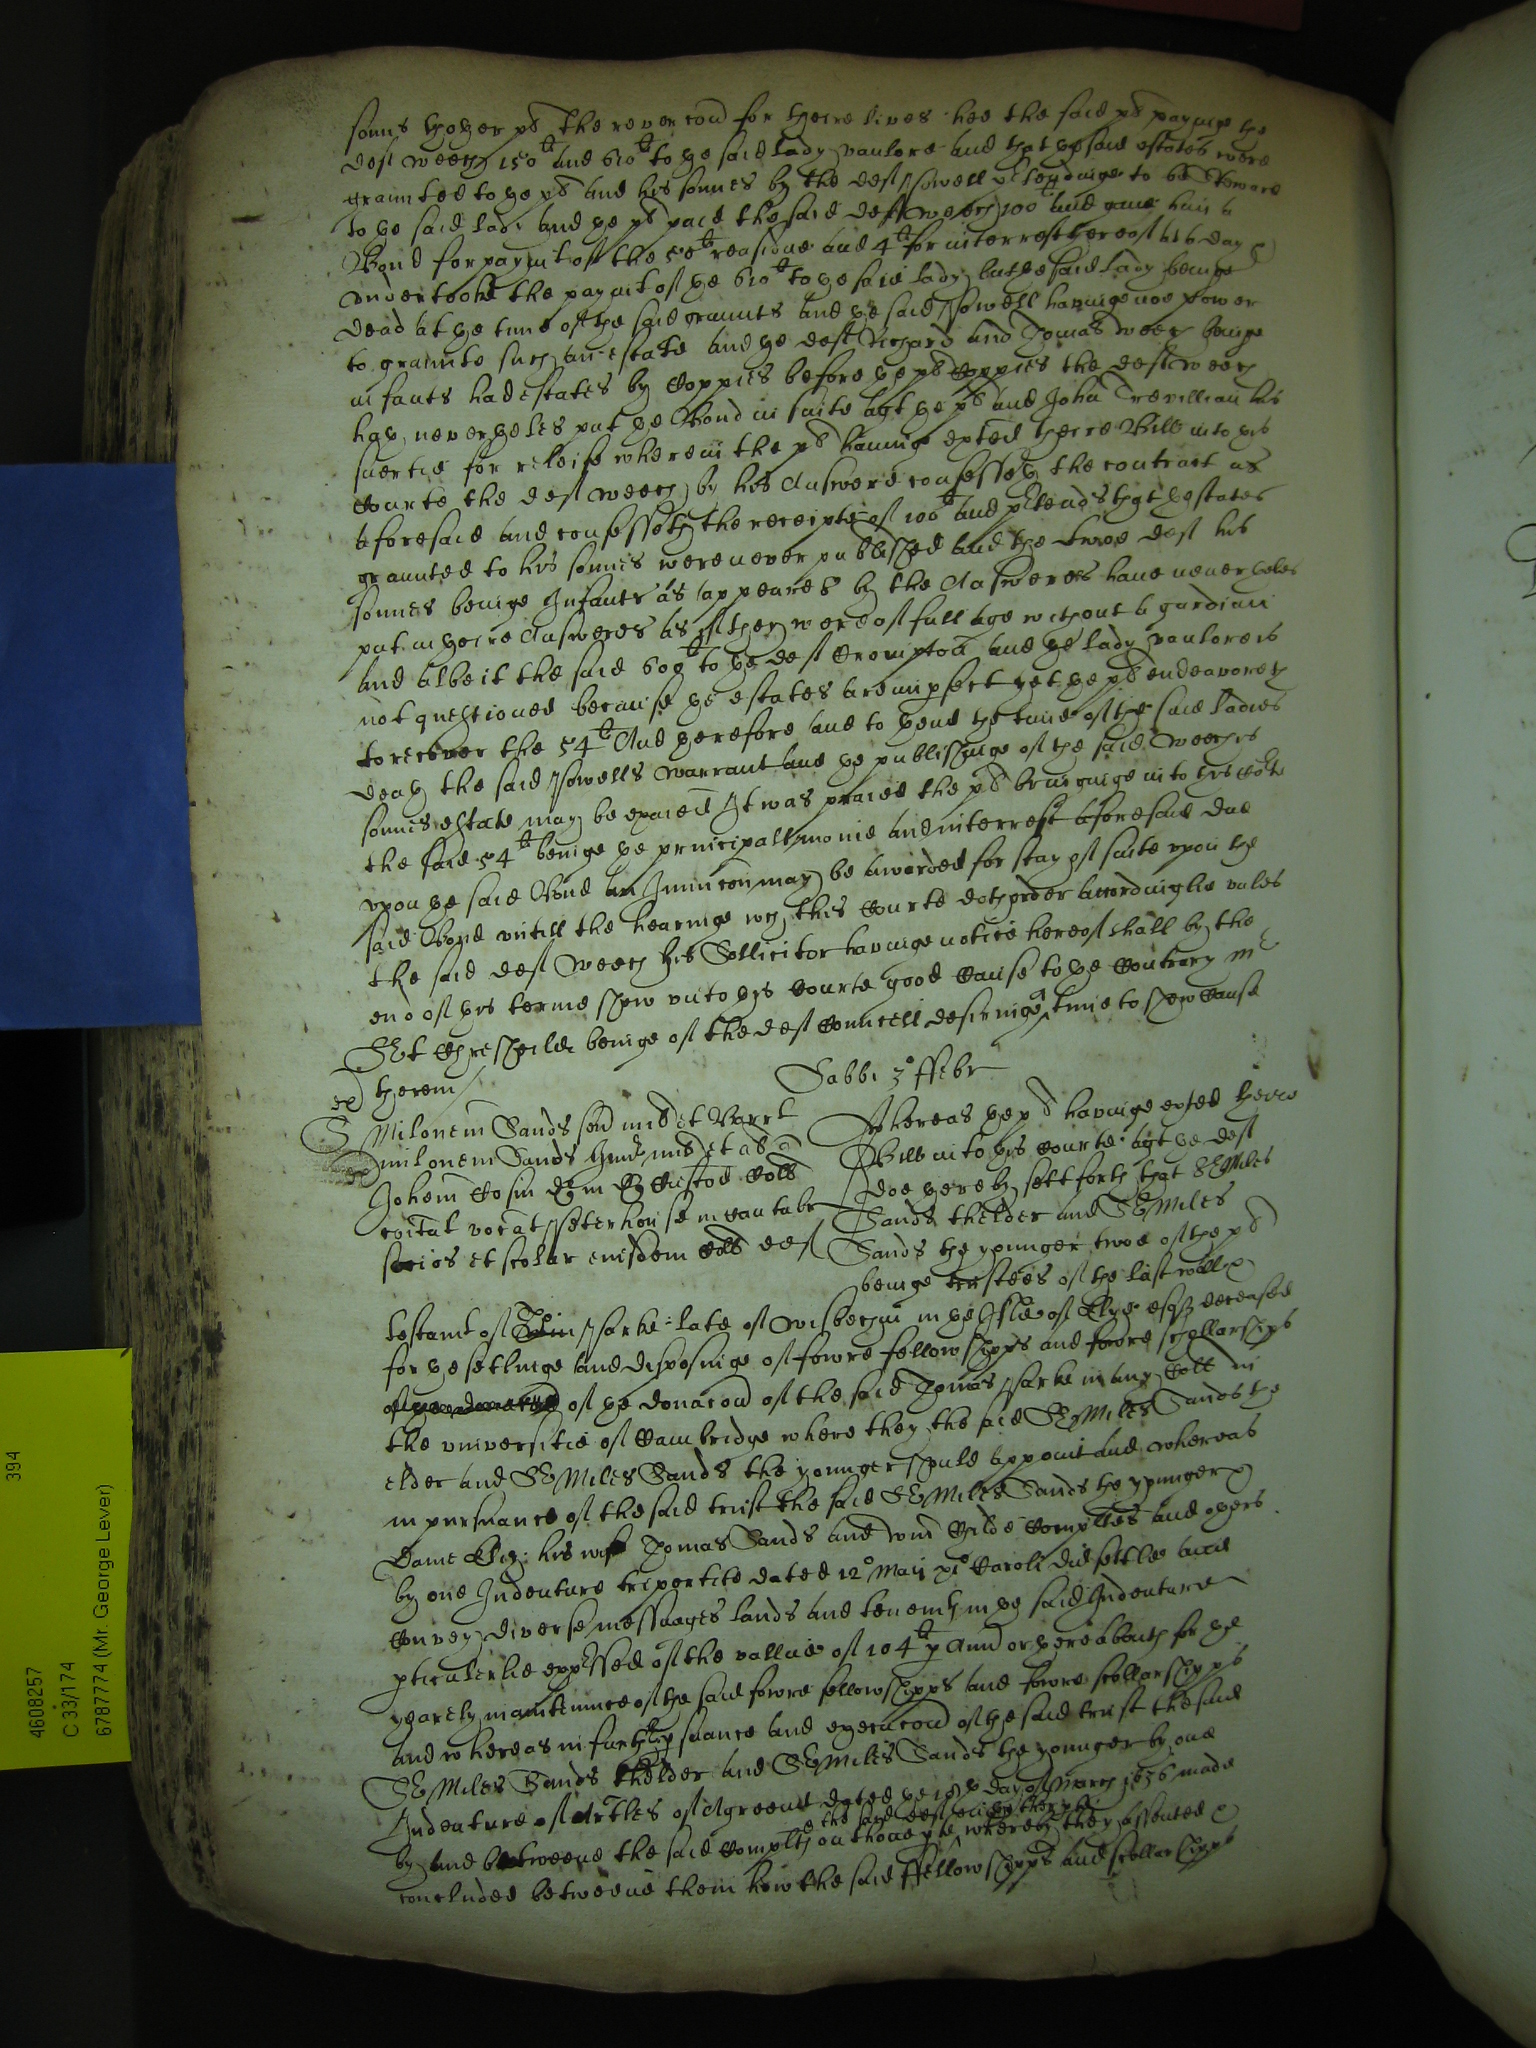 sonns th other pts the revercon for theire lives hee the said pt payinge the
deft Weech 150li and 610li to the said lady vanlore and that the said estates were
graunted to the pt and his sonnes by the deft Powell ptendinge to be Steward
to the said lady and the pt paid the said deft Weech 100li and gave him a
Bond for paymt of the 50li residue and 4li for interrest thereof at a day &
undertooke the paymt of the 610li to the said lady but the said lady beinge
dead at the time of the said graunts and the said Powell havinge noe power
to graunte such an estate and the deft Richard and Thomas Weech beinge
infants had estates by Coppies before the pts Coppies the deft Weech
hath neverthelesse put the Bond in suite agt the pt and John Trevillian his
suertie for releife wherein the pts havinge exhted theire Bill into this
Courte the deft Weech by his Answere confesseth the contract as
aforesaid and confesseth the receipte of 100li and ptends that the estates
graunted to his sonnes were never published and the twoe deft his
sonnes beinge Infants as appeares by the Answeres have neverthelesse
put in theire Answeres as if they were of full age without a gardian
and albeit the said 609li to the deft Crompton and the lady vanlore is
not questioned because the estates are imperfect yet the pt endeavoreth
to recover the 54li And therefore and to thend the time of the said Ladies
death the said Powells warrant and the publishinge of the said Weeches
sonnes estate may be examined It was praied the pt bringinge into this Courte
the said 54li beinge the principall monie and interrest aforesaid due
upon the said Bond an Iniunccon may be awarded for stay of suite upon the
said Bond untill the hearinge wch this Courte doth order accordinglie unles
the said deft Weech his Sollicitor havinge notice hereof shall by the
end of this terme shew unto this Courte good Cause to the Contrary Mr
Sert Thresheilde beinge of the deft Councell desiringe time to shew Cause
therein /
Sabbi 3o ffebr
Milonem Sands sen mil et Barrt
Milonem Sands Jun mil et al
Johem Cosin &c Custod Coll
vocat Peterhouse in Cantabr
socios et scolar eiusdem Coll def
Whereas the pts havinge exhted theire
Bill into this Courte agt the deft
doe thereby sett forth that Sr Miles
Sands thelder and Sr Miles
Sands the younger twoe of the pts
beinge trustees of the last will &
testamt of Tho: Parke late of Wisbech in the Isle of Elye esqr deceased
for the setlinge and disposinge of fowre fellowshipps and fowre schollarships
of the donacon of the said Thomas Parke in any Coll in
the universitie of Cambridge where they the said Sr Miles Sands the
elder and Sr Miles Sands the younger should appoint and whereas
in pursuance of the said trust the said Sr Miles Sands the younger &
Dame Eliz: his wife Thomas Sands and Wm Compltes and others
by one Indenture tripertite dated 12o Maij Caroli did settle and
Convey diverse messuages lands and tenemts in the said Indenture
pticulerlie expressed of the vallue of 104li p Ann or thereabouts for the
yearely maintennce of the said fowre fellowshipps and fowre scollarshipps
and whereas in further psuance and execucon of the said trust the said
Sr Miles Sands thelder and Sr Miles Sands the younger by one
Indenture of Articles of Agreemt dated the day of March 1636 made
by and betweene the said Complts on thone pte & the said deft on thother pte whereby they assented &
concluded betweene them how the said ffellowshipps and scollarshipps
4608257
C 33/174
6787774 (Mr. George Lever)
394